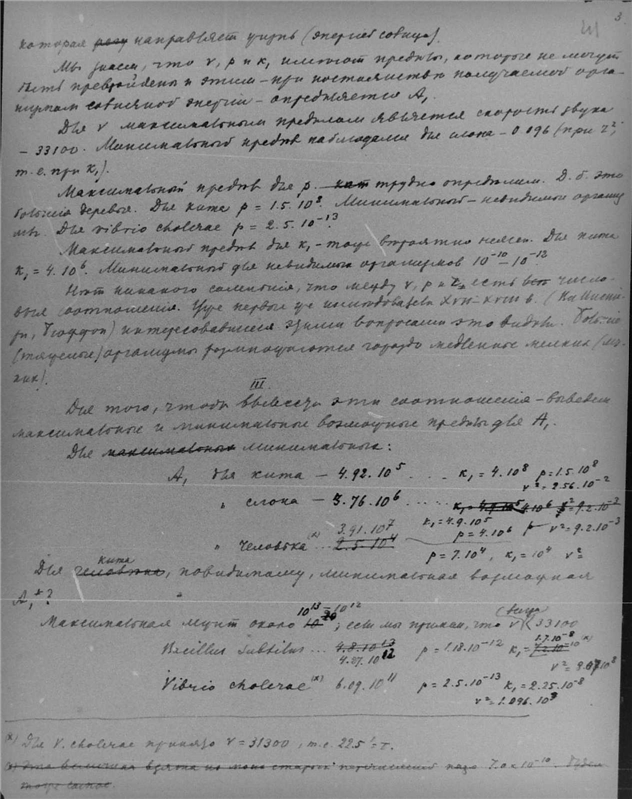 3
которая направляет жизнь (энергией солнца).
Мы знаем, что v, p и k₁ имеют пределы, которые не могут
быть превзойдены и этим – при постоянстве получаемой орга-
низмом солнечной энергии – определяется A₁
Для v максимальным пределом является скорость звука
– 33100. Минимальный предел наблюдался для слона – 0.096 (при
т.е. при k₁).
Максимальный предел для p трудно определим. Д.б. это
большие деревья. Для кита p = 1.5.10⁸. Минимальный – невидимые организ
мы. Для vibrio cholerae p = 2.5.10⁻¹³
Максимальный предел для k₁ – тоже вероятно неясен. Для кита
k₁ = 4.10⁸. Минимальный для невидимых организмов 10⁻¹⁰ – 10⁻¹³
Нет никакого сомнения, что между v, p и k₁ есть число-
вые соотношения. Уже первые исследователи XVII-XVIII в.
Бюффон) интересовавшиеся этими вопросами это видели.
(тяжелые) организмы размножаются гораздо медленнее мелких
III.
Для того, чтобы вывести эти соотношения – выведем
максимальные и минимальные возможные пределы для A₁.
Для максимальных минимальных:
A₁ для кита – 4.92.10⁵ .... k₁ = 4.10⁸ p = 1.5.10⁸
v² = 2.56.10⁻²
" слона – 3.76.10⁶ .....
3.41.10⁷ k₁ = 4.9.10⁵ p = 4.10⁶ v² = 9.2.10⁻³
" человека ... 2.5.10⁴ p = 7.10⁴, k₁ = 10⁴ v² =
Для человека, кита, повидимому, минимальная возможная
A₁ ?
Максимальная лежит около 10¹³ – 10¹², если мы примем, что v < 33100
Bacillus subtilis ... 4.8.10¹³ 4.27.10¹² p = 1.18.10⁻¹² k₁ = 1.7.10⁻⁸
v² = 9.07.10⁸
Vibrio cholerae (x) 6.09.10¹¹ p = 2.5.10⁻¹³ k₁ = 2.25.10⁻⁸
v² = 1.096.10⁹
x) Для V. cholerae принято v = 31300, т.е. 22.5' = τ.